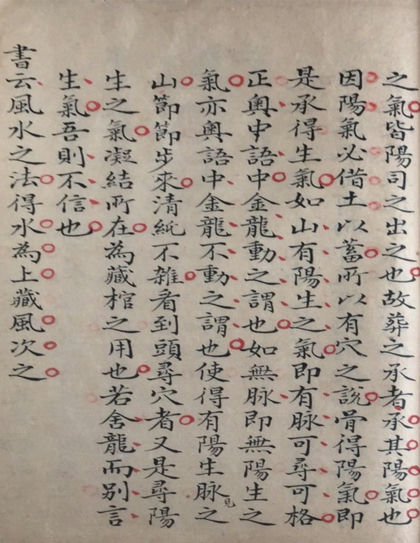 之氣皆陽司之出之也故葬之承者承其陽氣也
因陽氣必借土以蓄所以有穴之說骨得陽氣即
是承得生氣如山有陽生之氣即有脉可尋可格
正奧中語中金龍動之謂也如無脉即無陽生之
氣亦奧語中金龍不動之謂也使得有陽生脉之見
山節節步來清純不雜看到頭尋穴者又是尋陽
生之氣凝結所在為藏棺之用也若舍龍而別言
生氣吾則不信也
書云風水之法得水為上藏風次之